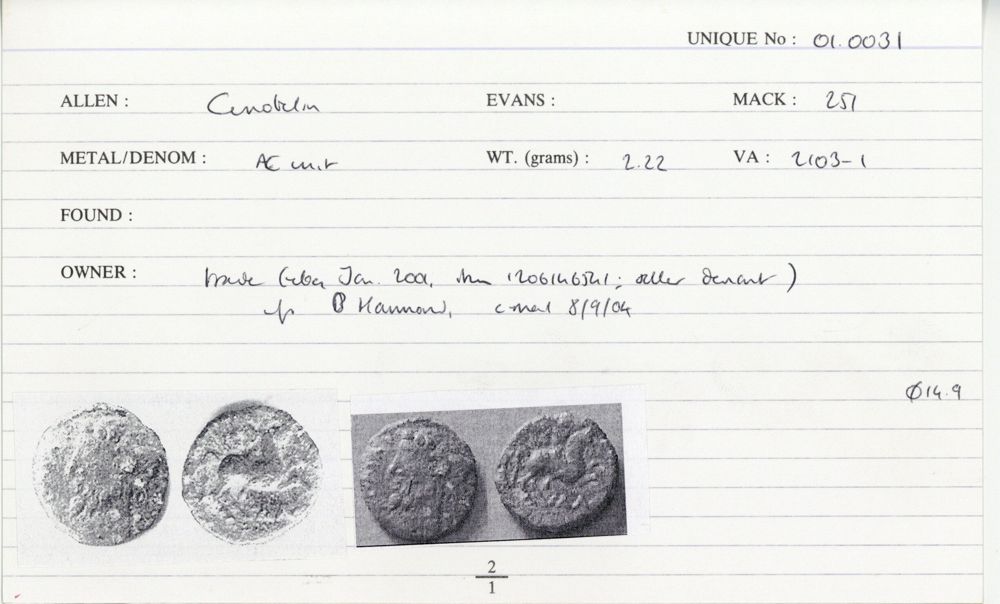 UNIQUE No : 01.0031
ALLEN : Cunobelin EVANS : MACK : 251
METAL/DENOM : Æ unit WT. (grams) : 2.22 VA : 2103-1
FOUND :
OWNER : trade (eBay Jan. 2001, item 1206146541; seller )
B Hammond, e-mail 8/9/04
Ø14.9
2
1